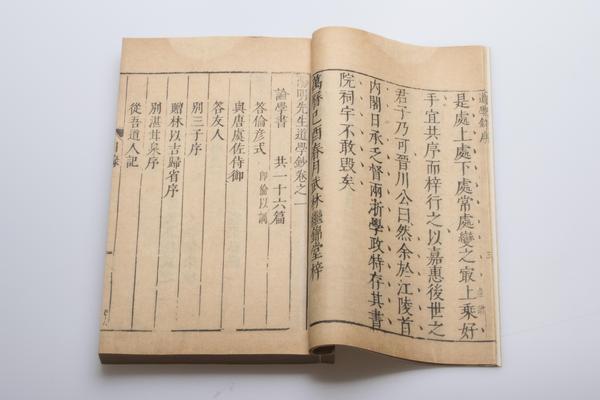 道學鈔序
三
是處上處下處常處變之最上乘好
手宜共序而梓行之以嘉惠後世之
君子乃可晉川公曰然余於江陵首
内閣日承乏督兩浙學政特存其書
院祠宇不敢毀矣
萬曆己酉春月武林繼錦堂梓
陽明先生道學鈔卷之一
論學書 共一十六篇
答倫彥式
與唐虞佐侍御
答友人
別三子序
贈林以吉歸省序
別湛甘泉序
從吾道人記
目錄